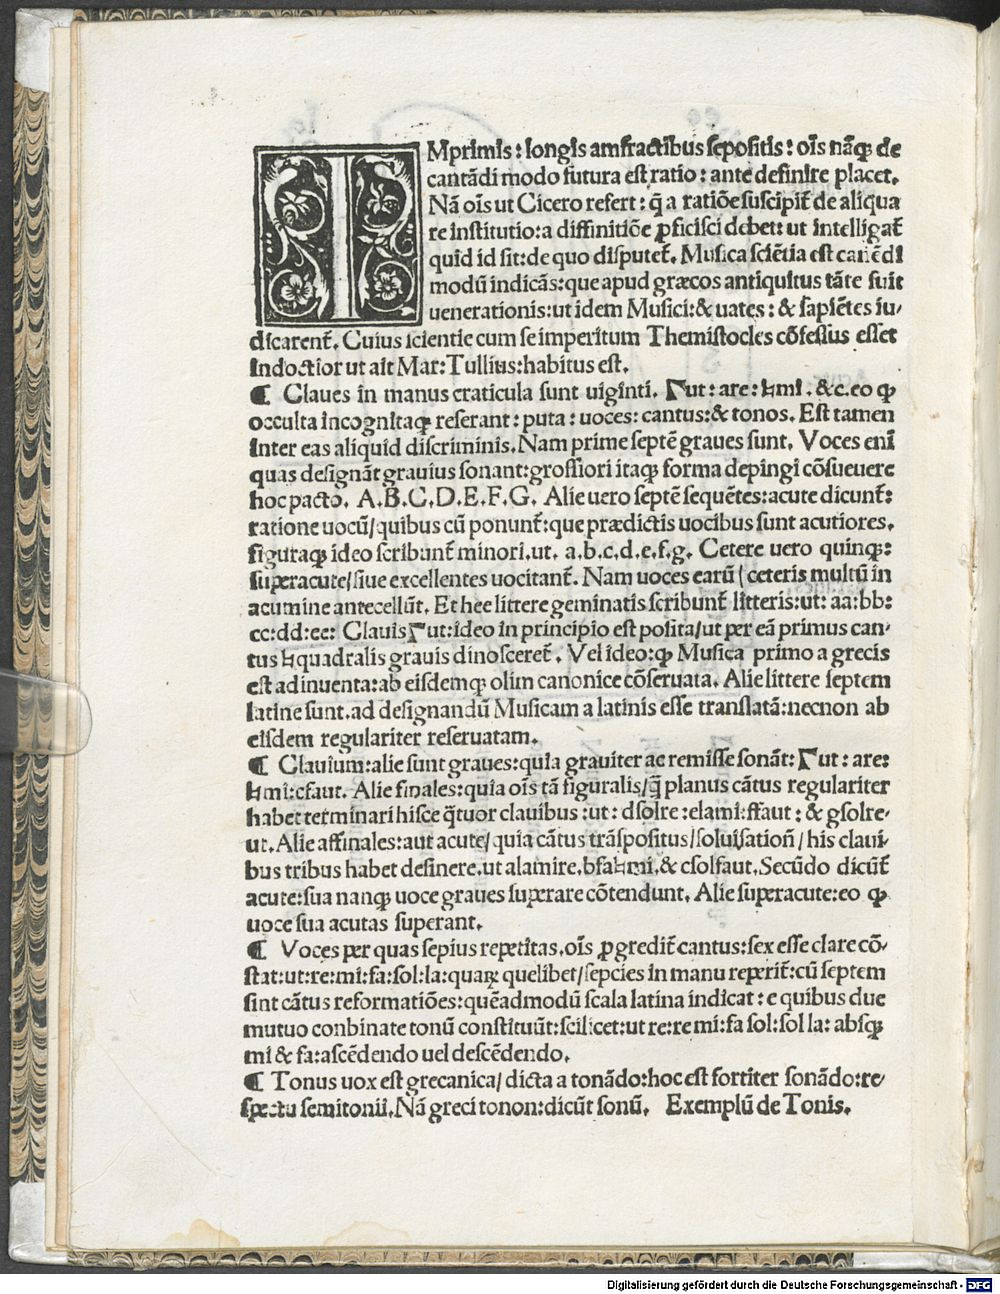 IMprimis: longis amfractibus sepositis: oĩs nãꝗ de
cantãdi modo futura est ratio: ante definire placet.
Nã oĩs ut Cicero refert: q̃ a ratiõe suscipit̃ de aliqua
re institutio: a diffinitiõe ꝓficisci debet: ut intelligat̃
quid id sit: de quo disputet̃. Musica sciẽtia est canẽdi
modũ indicãs: que apud græcos antiquitus tãte fuit
uenerationis: ut idem Musici: & uates: & sapiẽtes iu-
dicarent̃. Cuius scientie cum se imperitum Themistocles cõfessus esset
indoctior ut ait Mar: Tullius: habitus est.
¶ Claues in manus craticula sunt uiginti. Γut: are: ♮mi. &c. eo ꝙ
occulta incognitaꝗ referant: puta: uoces: cantus: & tonos. Est tamen
inter eas aliquid discriminis. Nam prime septẽ graues sunt. Voces eni
quas designãt grauius sonant: grossiori itaꝗ forma depingi cõsueuere
hoc pacto. A. B. C. D. E. F. G. Alie uero septẽ sequẽtes: acute dicunt̃:
ratione uocũ/ quibus cũ ponunt̃: que prædictis uocibus sunt acutiores.
figuraꝗ ideo scribunt̃ minori. ut. a. b. c. d. e. f. g. Cetere uero quinꝗ:
superacute/ siue excellentes uocitant̃. Nam uoces earũ ( ceteris multũ in
acumine antecellũt. Et hee littere geminatis scribunt̃ litteris: ut: aa: bb:
cc: dd: ee: Clauis Γut: ideo in principio est posita/ ut per eã primus can-
tus ♮quadralis grauis dinosceret̃. Vel ideo: ꝙ Musica primo a grecis
est adinuenta: ab eisdemꝗ olim canonice cõseruata. Alie littere septem
latine sunt. ad designandũ Musicam a latinis esse translatã: necnon ab
eisdem regulariter reseruatam.
¶ Clauium: alie sunt graues: quia grauiter ac remisse sonãt: Γut: are:
♮mi: cfaut. Alie finales: quia oĩs tã figuralis/ q̃ planus cãtus regulariter
habet terminari hisce q̃tuor clauibus: ut: dsolre: elami: ffaut: & gsolre-
ut. Alie affinales: aut acute/ quia cãtus trãspositus/ soluisatioñ/ his claui
bus tribus habet desinere. ut alamire. bfa♮mi. & csolfaut. Secũdo dicũt̃
acute: sua nanꝗ uoce graues superare cõtendunt. Alie superacute: eo ꝙ
uoce sua acutas superant.
¶ Voces per quas sepius repetitas. oĩs ꝓgredit̃ cantus: sex esse clare cõ-
stat: ut: re: mi: fa: sol: la: quaꝝ quelibet/ sepcies in manu reperit̃: cũ septem
sint cãtus reformatiões: quẽadmodũ scala latina indicat: e quibus due
mutuo conbinate tonũ constituũt: scilicet: ut re: re mi: fa sol: sol la: absꝗ
mi & fa: ascẽdendo uel descẽdendo.
¶ Tonus uox est grecanica/ dicta a tonãdo: hoc est fortiter sonãdo: re-
spectu semitonii. Nã greci tonon: dicũt sonũ. Exemplũ de Tonis.
Digitalisierung gefördert durch die Deutsche Forschungsgemeinschaft - DFG